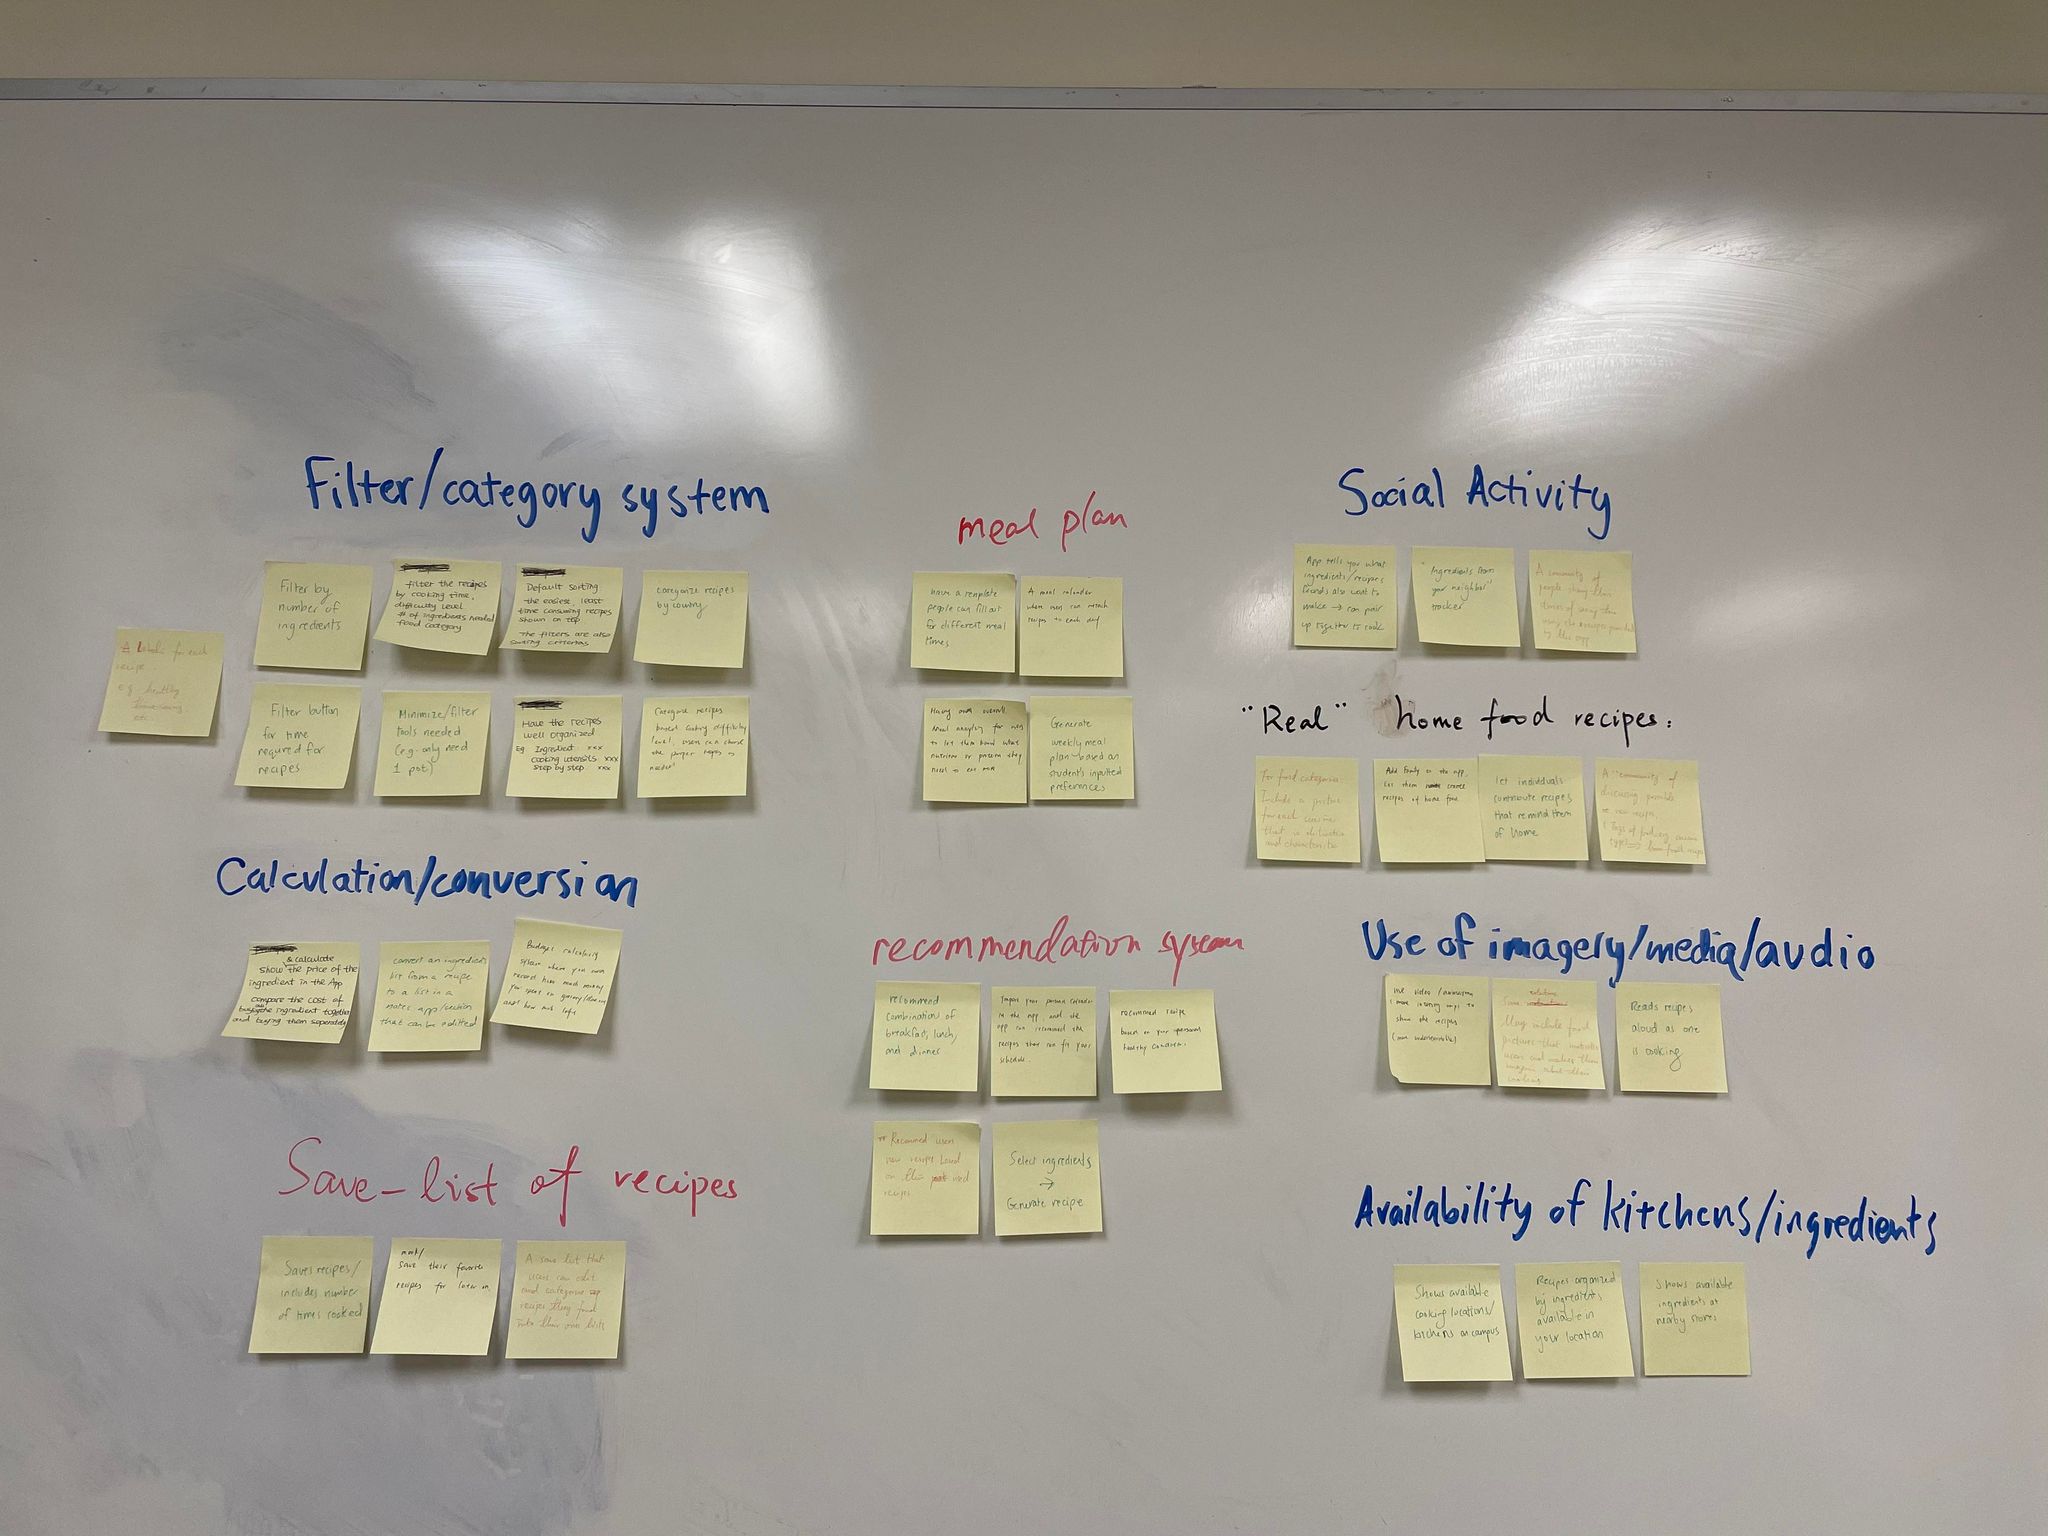 Filter/category system
A label for each
recipe
e.g. healthy
time-saving
etc.
Filter by
number of
ingredients
filter the recipes
by cooking time,
difficulty level
# of ingredients needed
food category
Default sorting
the easiest, least
time consuming recipes
shown on top
The filters are also
sorting criterias
categorize recipes
by country
Filter button
for time
required for
recipes
Minimize/filter
tools needed
(e.g. only need
1 pot)
Have the recipes
well organized
Eg. Ingredient: xxx
cooking utensils xxx
step by step xxx
Categorize recipes
based cooking difficulty
level, users can choose
the proper recipes
needed
Calculation/conversion
& calculate
show the price of the
ingredient in the App
compare the cost of
buying the ingredient together
and buying them seperately
convert an ingredients
list from a recipe
to a list in a
notes app/section
that can be editted
Budget calculating
system where you can
record how much money
you spent on
and how much left
Save-list of recipes
Saves recipes/
includes number
of times cooked
mark/
save their favorite
recipes for later on
A save list that
users can edit
and categorize
recipes they found
into their own lists
meal plan
have a template
people can fill out
for different meal
times
A meal calendar
where user can attach
recipes to each day
Having an overall
Meal analysis for users
to let them know what
nutrition or protein they
need to eat more
Generate
weekly meal
plan based on
student's inputted
preferences
recommendation system
recommend
combination of
breakfast, lunch,
and dinner
Import your personal calendar
in the app, and the
app can recommend the
recipes that can fit your
schedule.
recommend recipe
based on your personal
healthy condition.
Recommed users
new recipe based
on their used
recipes
Select ingredients
→
Generate recipe
Social Activity
App tells you what
ingredients/recipes
friends also want to
make → can pair
up together to cook
"Ingredients from
your neighbor"
tracker
A community of
people sharing their
using the recipes provided
by this app
"Real" home food recipes:
For food categories
Include a picture
for each cuisine
that is distinctive
and characteristic
Add family to the app,
let them create
recipes of home food
Let individuals
contribute recipes
that remind them
of home
A "community" of
discussing possible
new recipe
Use of imagery/media/audio
use video/animation
(more interesting ways) to
show the recipes
(more understandable)
May include food
pictures that motivate
users and makes them
Reads recipes
aloud as one
is cooking
Availability of kitchens/ingredients
Shows available
cooking locations/
kitchens on campus
Recipes organized
by ingredients
available in
your location
Shows available
ingredients at
nearby stores